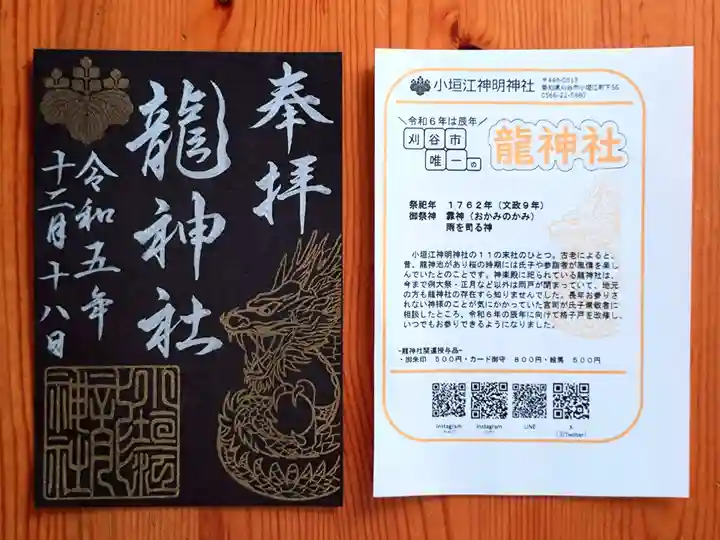 奉拝
龍神社
令和五年
十二月十八日
小垣江
龍
神社
小垣江神明神社
〒448-0813
愛知県刈谷市小垣江町下56
0566-21-5880
令和6年は辰年
刈谷市
唯一の
龍神社
祭祀年 1762年(文政9年)
御祭神 龗神(おかみのかみ)
雨を司る神
小垣江神明神社の11の末社のひとつ。古老によると、
昔、龍神池があり桜の時期には氏子や参詣者が風情を楽し
んでいたとのことです。神楽殿に祀られている龍神社は、
今まで例大祭・正月など以外は雨戸が閉まっていて、地元
の方も龍神社の存在すら知りませんでした。長年お参りさ
れない神様のことが気にかかっていた宮司が氏子崇敬者に
相談したところ、令和6年の辰年に向けて格子戸を改修し、
いつでもお参りできるようになりました。
-龍神社関連授与品-
・御朱印 500円・カード御守 800円・絵馬 500円
Instagram
Instagram
LINE
X
(旧Twitter)